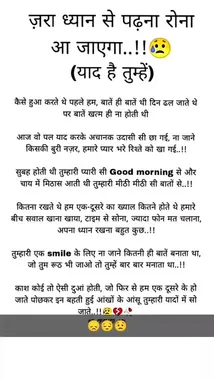 ज़रा ध्यान से पढ़ना रोना
आ जाएगा..!!😥
(याद है तुम्हें)
कैसे हुआ करते थे पहले हम, बातें ही बातें थी दिन ढल जाते थे
पर बातें खत्म ही ना होती थी
आज वो पल याद करके अचानक उदासी सी छा गई, ना जाने
किसकी बुरी नज़र, हमारे प्यार भरे रिश्ते को खा गई.!!
सुबह होती थी तुम्हारी प्यारी सी Good morning से और
चाय में मिठास आती थी तुम्हारी मीठी मीठी सी बातों से..!!
कितना रखते थे हम एक-दूसरे का ख्याल कितने होते थे हमारे
बीच सवाल खाना खाया, टाइम से सोना, ज्यादा फोन मत चलाना,
अपना ध्यान रखना बहुत कुछ..!!
तुम्हारी एक smile के लिए ना जाने कितनी ही बातें बनाता था,
जो तुम रूठ भी जाओ तो तुम्हें बार बार मनाता था..!!
काश कोई तो ऐसी दुआ होती, जो फिर से हम एक दूसरे के हो
जाते पोछकर इन बहती हुई आंखों के आंसू तुम्हारी यादों में सो
जाते..!!🥺💔🥀
😔😔😟